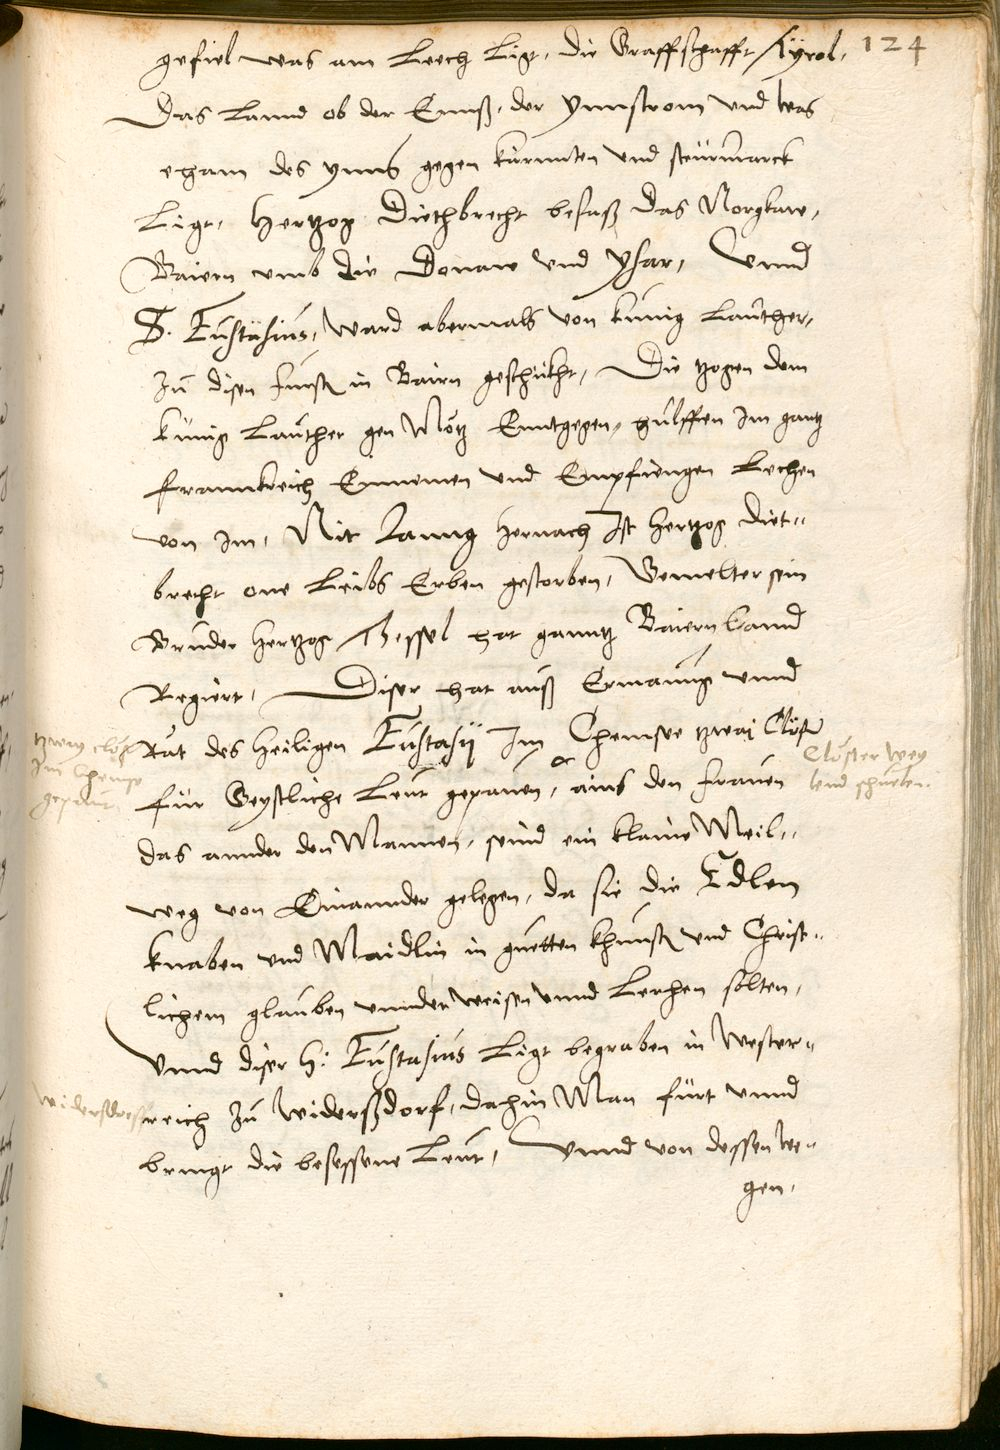 124
gefiel was am Leech Ligt, die Graffschafft Tyrol,
Das Lannd ob der Ennß, der Ynnstrom und was
enham des ynns gegen kärnnten und steürmarck
Ligt, Hertzog Diethbrecht besaß das Norgkaw,
Baiern umb die Donaw und Ysar, Vnnd
S. Eustäsius, ward abermals von künig Lauther,
zu disen fürst in Bairn geschickt, Die zogen dem
künig Lauther gen Mötz Enntgegen, hulffen Im gantz
frannkreich Einnemen und Empfiengen Lechen
von Im, Nit Lanng hernach Ist Hertzog Diet-
brecht one Leibs Erben gestorben, Gemelter sein
Bruder Hertzog Thessel hat ganntz Baiern Lannd
Regiert, Diser hat auß Ermanung vnnd
Rat des Heiligen Eustasij Im Chemsee zwai Clöster
für Geystliche Leut gepauen, ains den frauen
das annder den Mannen, seind ein klaine Meil-
weg von Einannder gelegen, da sie die Edlen
knaben und Maidlin in guetten khünst und Christ-
lichem glauben unnderweisen unnd Lerhen solten,
Vnnd diser H: Eustasius Ligt begraben in Wester-
reich zu Widerßdorf, dahin Man fürt vnnd
bringt die besessene Leut, Vnnd von dessen we-
gen,
zway clöst
Im Chemse
gepaut
Clöster weg
und schuelen.
Widersdorff